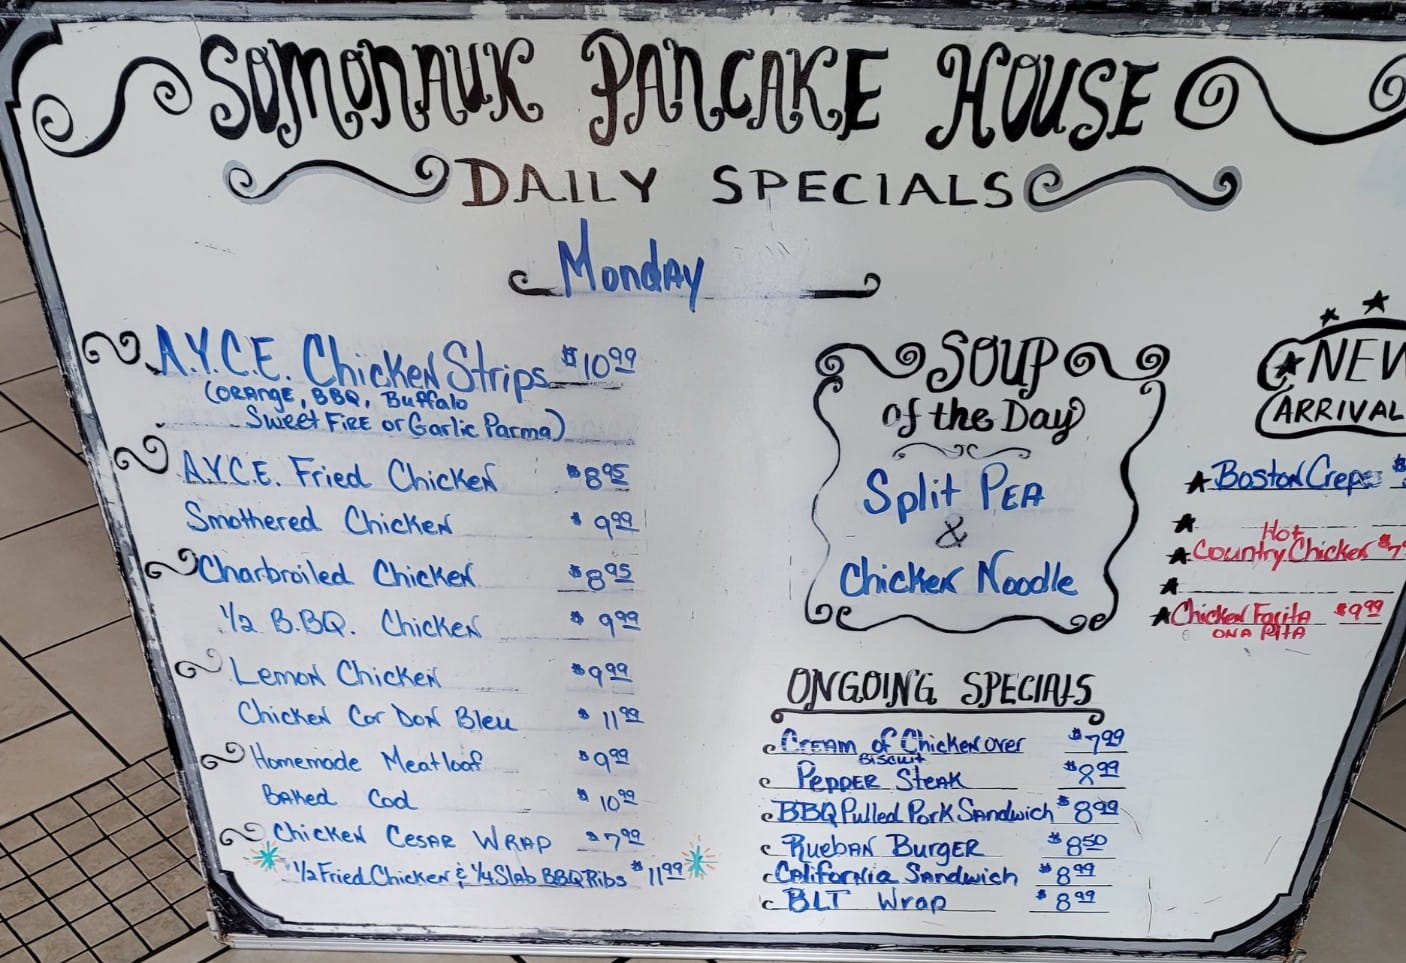 SOMONAUK PANCAKE HOUSE
DAILY SPECIALS
Monday
A.Y.C.E. Chicken Strips $10.99
(ORANGE, BBQ, Buffalo
Sweet FIRE or Garlic Parma)
A.Y.C.E. Fried Chicken $8.95
Smothered Chicken $9.99
Charbroiled Chicken $8.95
1/2 B.BQ. Chicken $9.99
Lemon Chicken $9.99
Chicken Cor Don Bleu $11.99
Homemade Meatloaf $9.99
Baked Cod $10.99
Chicken Cesar Wrap $7.99
1/2 Fried Chicken & 1/4 Slab BBQ Ribs $11.99
SOUP
of the Day
Split PEA
&
Chicken Noodle
ONGOING SPECIALS
Cream of Chicken over $7.99
Biscuit
Pepper Steak $8.99
BBQ Pulled Pork Sandwich $8.99
Rueban Burger $8.50
California Sandwich $8.99
BLT Wrap $8.99
NEW
ARRIVAL
Boston Crepe $
Hot
Country Chicken $7
Chicken Fagita $9.99
ON A PITA